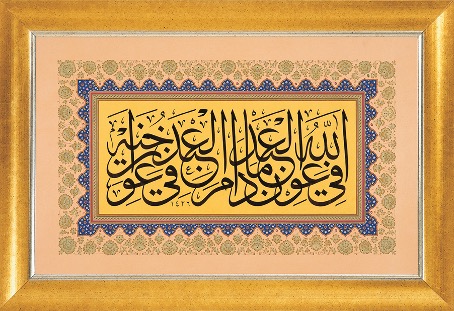 الله في عون العبد مادام العبد في عون اخيه
١٤٢٦